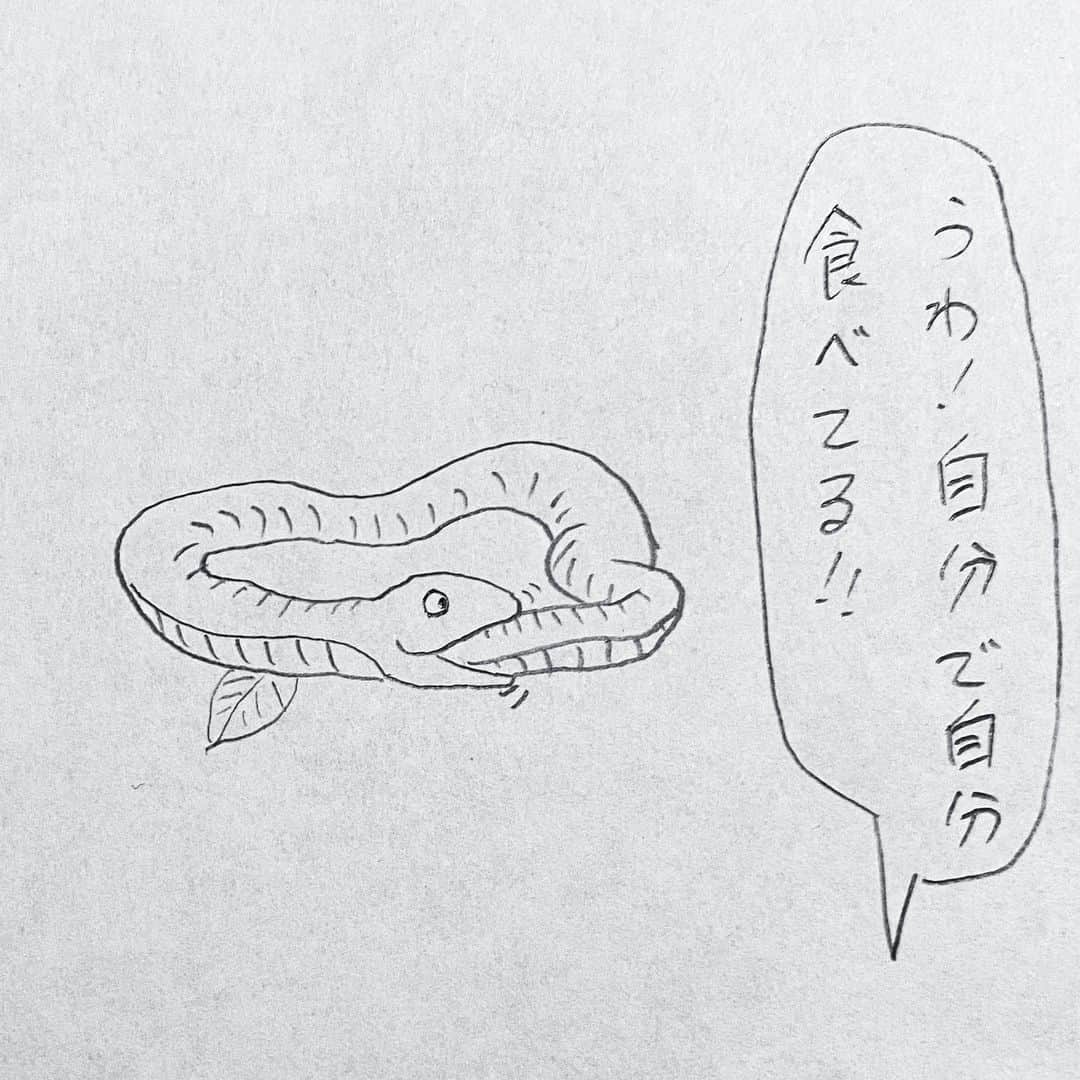 うわ！自分で自分
食べてる！！